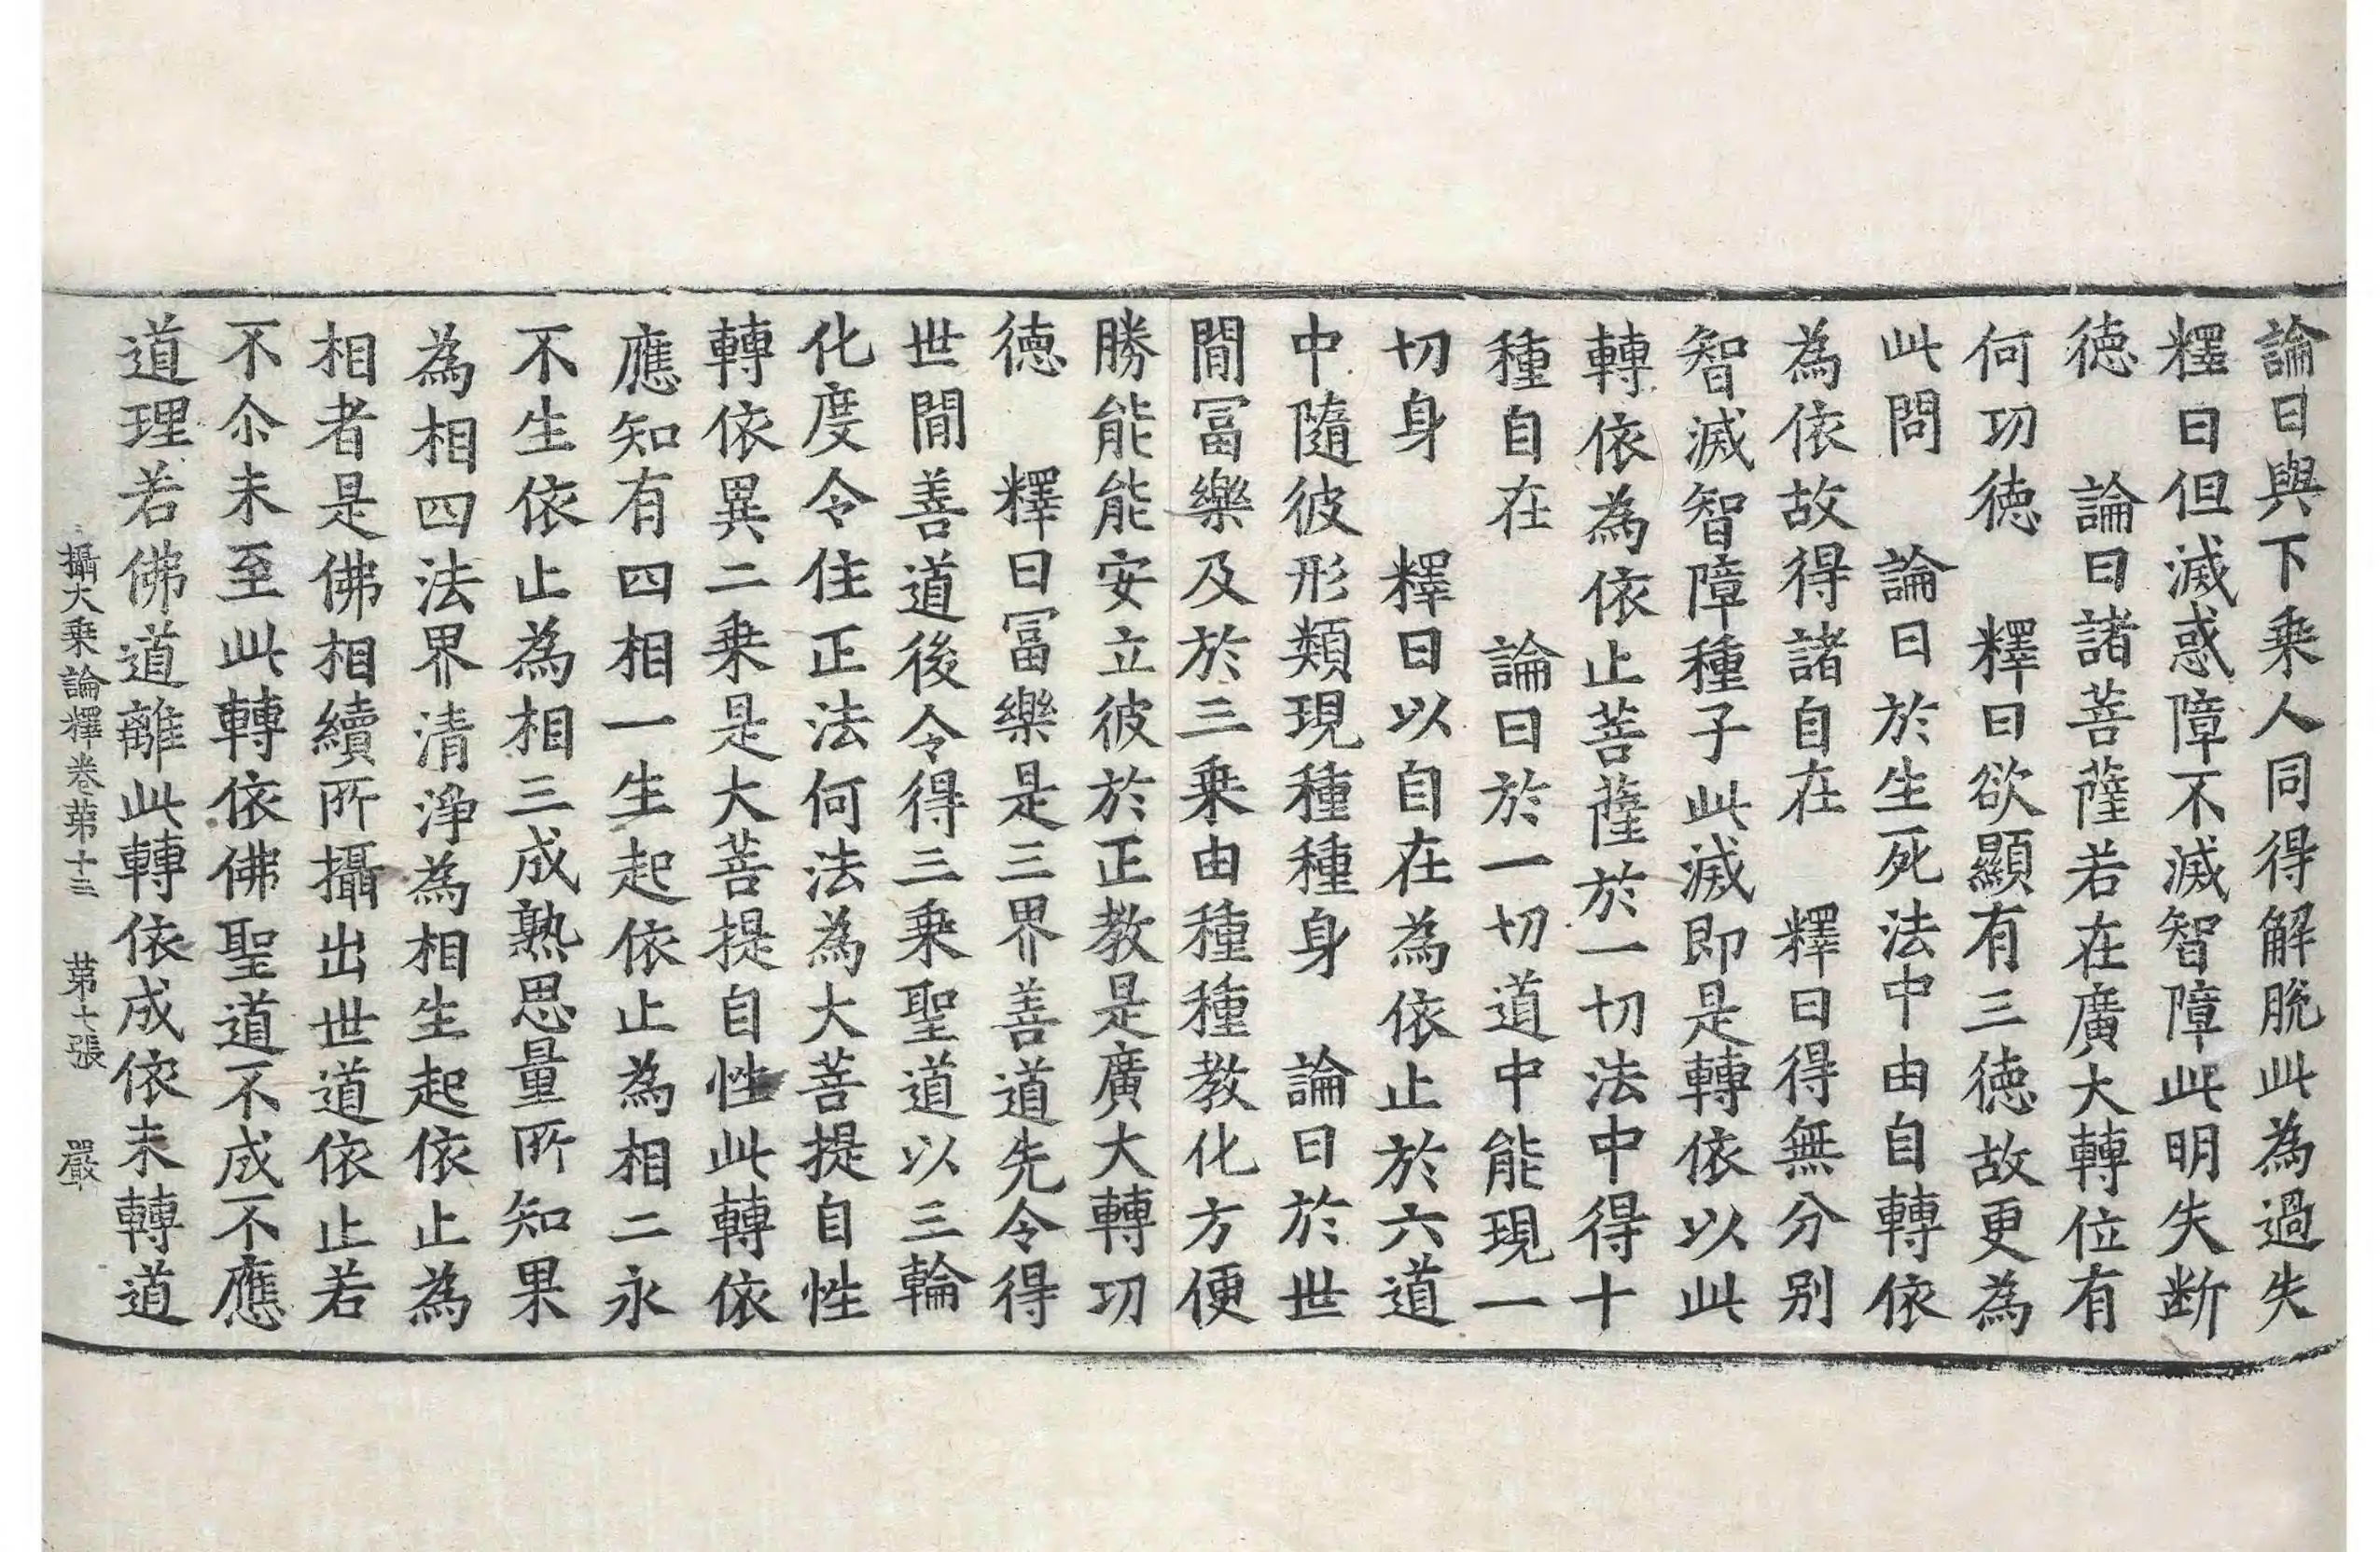 論曰與下乗人同得解脫此為過失
釋曰但滅惑障不滅智障此明失断
徳　論曰諸菩薩若在廣大轉位有
何功徳　釋曰欲顯有三徳故更為
此問　論曰於生死法中由自轉依
為依故得諸自在　釋曰得無分别
智滅智障種子此滅即是轉依以此
轉依為依止菩薩於一切法中得十
種自在　論曰於一切道中能現一
切身　釋曰以自在為依止於六道
中隨彼形類現種種身　論曰於世
間冨樂及於三乗由種種教化方便
勝能能安立彼於正教是廣大轉功
徳　釋曰冨樂是三界善道先令得
世間善道後令得三乗聖道以三輪
化度令住正法何法為大菩提自性
轉依異二乗是大菩提自性此轉依
應知有四相一生起依止為相二永
不生依止為相三成熟思量所知果
為相四法界清淨為相生起依止為
相者是佛相續所攝出世道依止若
不尒未至此轉依佛聖道不成不應
道理若佛道離此轉依成依未轉道
攝大乗論釋卷苐十三　苐七張　嚴